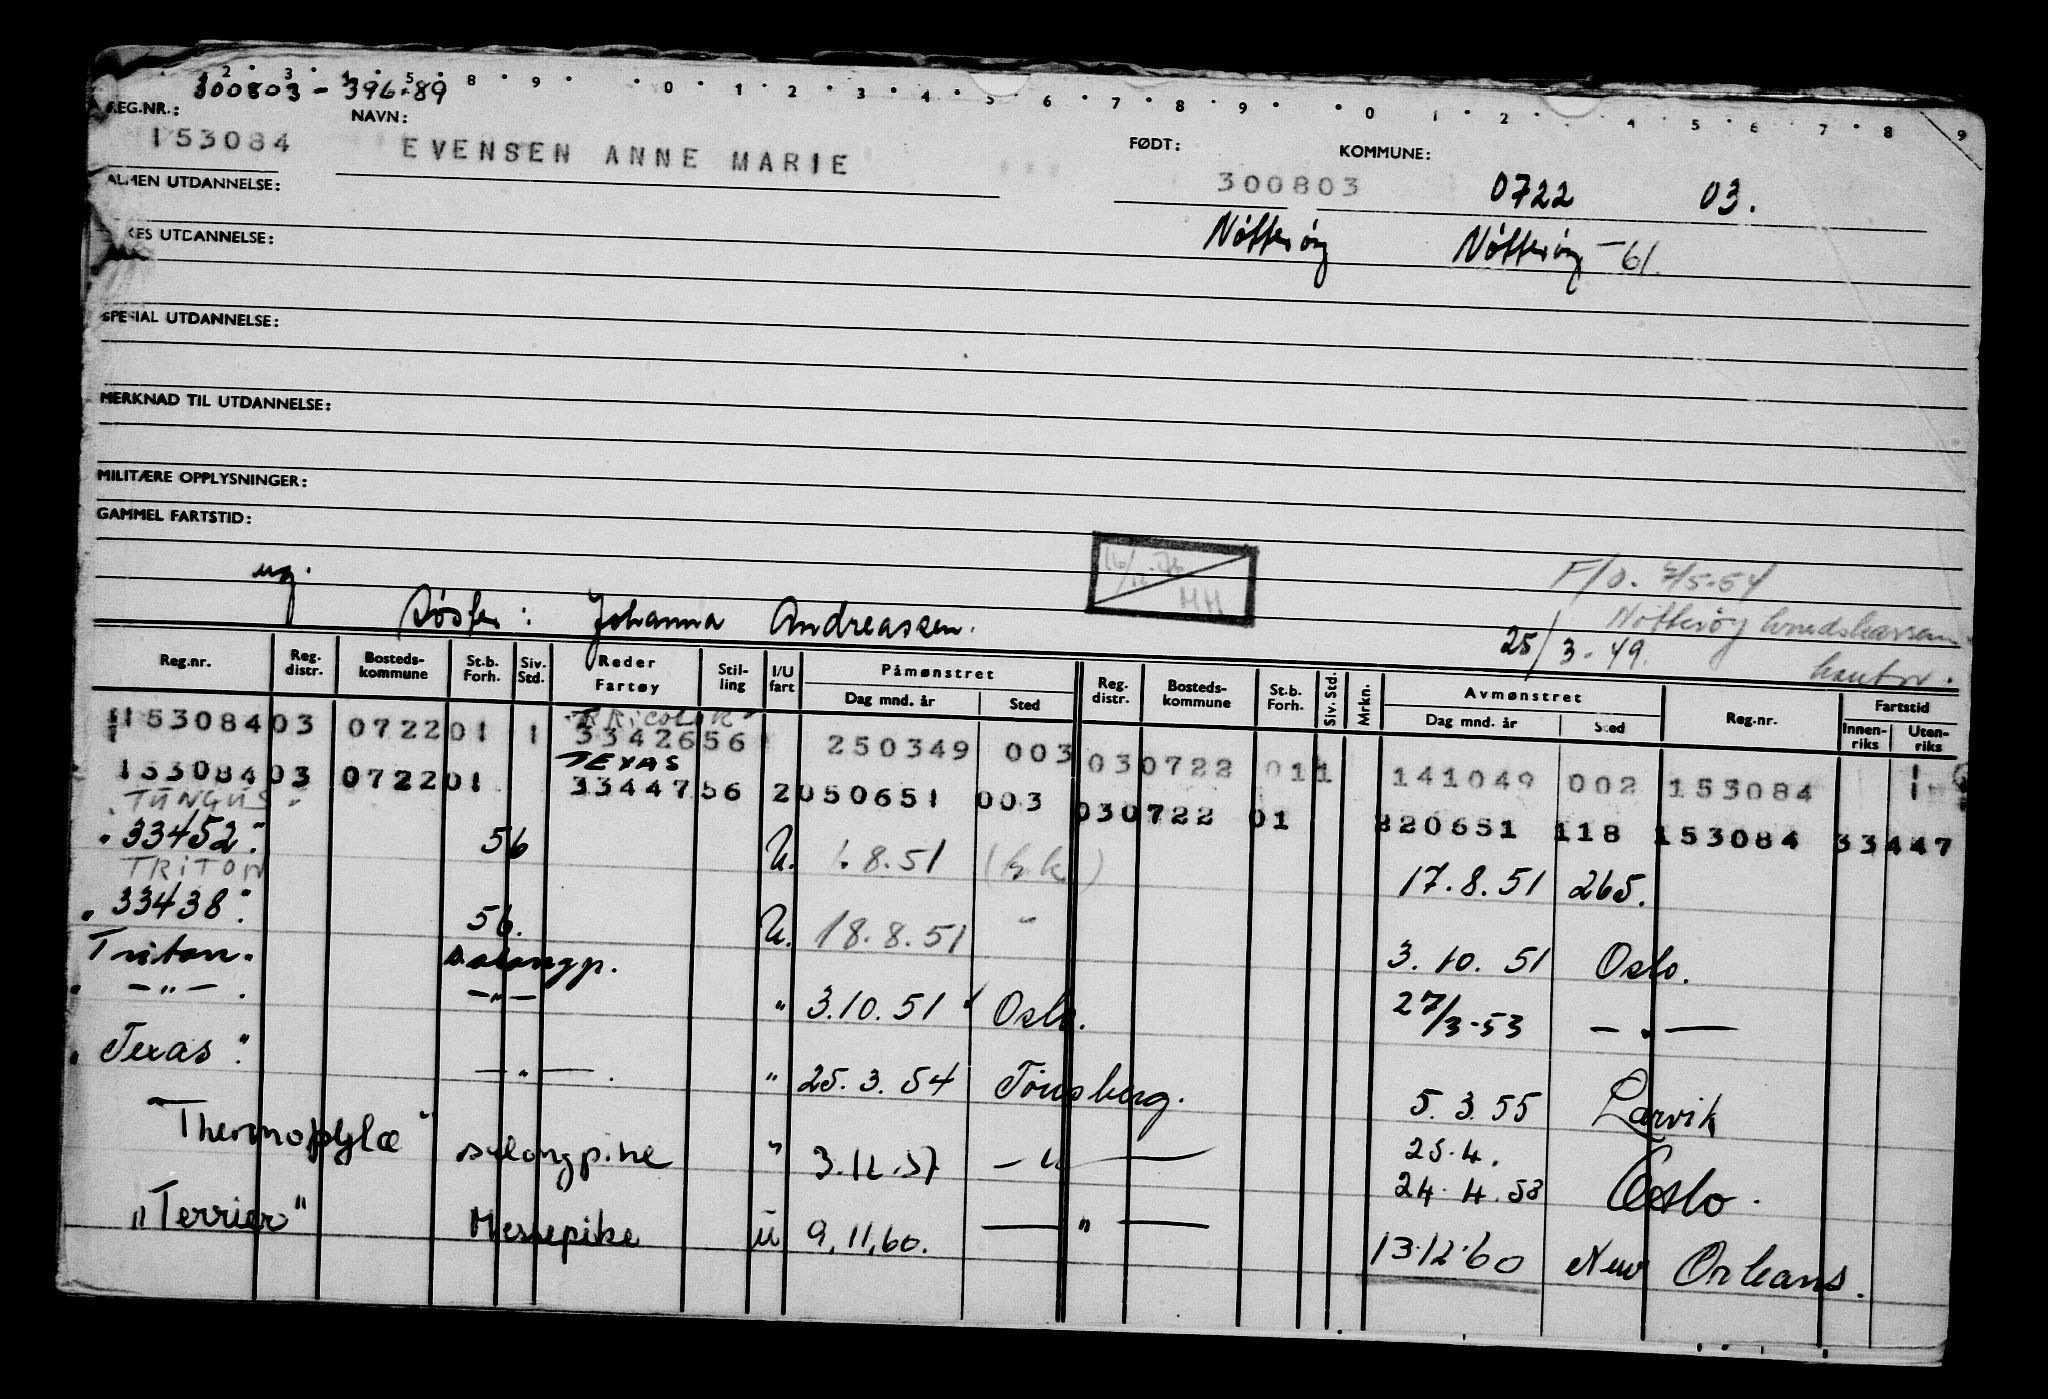 2 3 4 5 8 9 0 1 2 3 4 5 6 7 8 9 0 1 2 4 5 6 7 8 9
300803 - 396.89
REG.NR.: NAVN: FØDT: KOMMUNE:
153084 EVENSEN ANNE MARIE 300803 0722 03.
ALMEN UTDANNELSE:
Nøtterøy Nøtterøy -61.
UTDANNELSE:
SPESIAL UTDANNELSE:
MERKNAD TIL UTDANNELSE:
MILITÆRE OPPLYSNINGER:
GAMMEL FARTSTID:
ug. HH F/O. 5/5-54
Søster: Johanna Andreassen. 25/3-49. Nøtterøy
kontor.
Reg.nr. Reg. distr. Bosteds-kommune St.b. Forh. Siv. Std. Reder Fartøy Stil-ling I/U fart Påmønstret Dag mnd. år Sted Reg. distr. Bosteds-kommune St.b. Forh. Siv. Std. Mrkn. Avmønstret Dag mnd. år Sted Reg.nr. Fartstid Innen-riks Uten-riks
TRICOLOR
153084 03 0722 01 1 33426 56 250349 003 03 0722 01 1 141049 002 153084
TEXAS
153084 03 0722 01 33447 56 2 050651 003 03 0722 01 220651 118 153084 33447
TUNGUS
"33452" 56 U. 1.8.51 (h.k.) 17.8.51 265.
TRITON
"33438" 56. U. 18.8.51 " 3.10.51 Oslo.
Triton. salongp.
" - " - . - " - " 3.10.51 Oslo. 27/3-53 - " -
"Texas" - " - . " 25.3.54 Tönsberg. 5.3.55 Larvik
25.4.
"Thermopylæ" salongpike " 3.12.57 - " - 24.4.58 Oslo.
"Terrier" Messepike u 9.11.60. - " - 13.12.60 New Orleans.